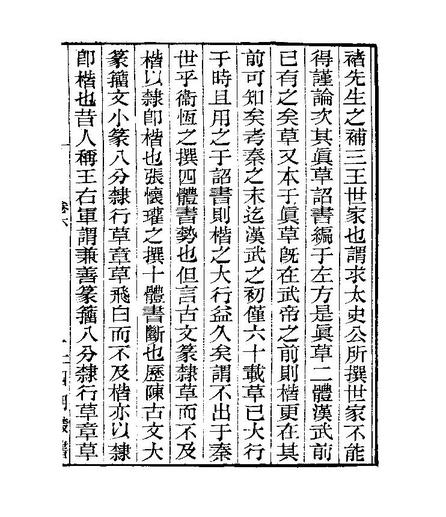 褚先生之補三王世家也謂求太史公所撰世家不能
得謹論次其眞草詔書編于左方是眞草二體漢武前
已有之矣草又本于眞草旣在武帝之前則楷更在其
前可知矣考秦之末迄漢武之初僅六十載草已大行
于時且用之于詔書則楷之大行益久矣謂不出于秦
世乎衞恆之撰四體書勢也但言古文篆隸草而不及
楷以隸卽楷也張懷瓘之撰十體書斷也歷陳古文大
篆籀文小篆八分隸行草章草飛白而不及楷亦以隸
卽楷也昔人稱王右軍謂兼善篆籀八分隸行草章草
卷六
四明叢書